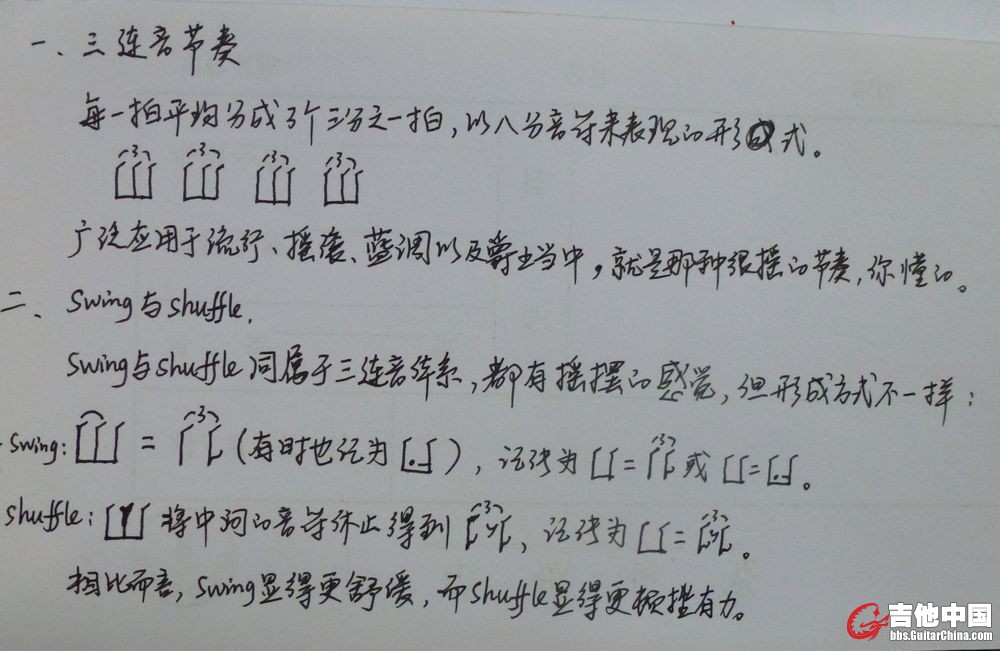 一、三连音节奏
每一拍平均分成3个三分之一拍,以八分音符来表现的形式。
3 3 3 3
广泛应用于流行、摇滚、蓝调以及爵士当中,就是那种很摇的节奏,你懂的。
二、Swing与shuffle.
Swing与shuffle同属于三连音体系,都有摇摆的感觉,但形成方式不一样:
Swing: = 3 (有时也记为 ),记法为 = 3 或 = 。
Shuffle: 将中间的音符休止得到 3 ,记法为 = 3 。
相比而言,Swing显得更舒缓,而Shuffle显得更顿挫有力。
吉他中国
bbs.GuitarChina.com